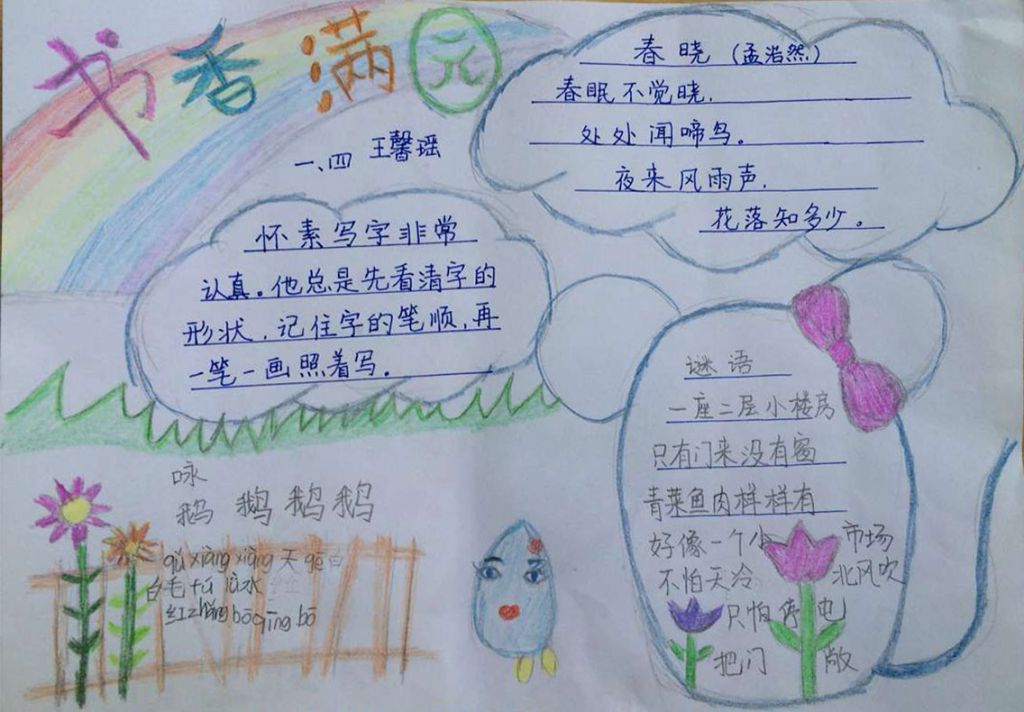 书香满元
一、四 王馨瑶
春晓（孟浩然）
春眠不觉晓.
处处闻啼鸟。
夜来风雨声.
花落知多少。
怀素写字非常
认真。他总是先看清字的
形状.记住字的笔顺,再
一笔一画照着写.
谜语
一座二层小楼房
只有门来没有窗
青菜鱼肉样样有
好像一个小市场
不怕天冷北风吹
只怕停电
把门敞
咏
鹅 鹅鹅鹅
qǔ xiàng xiàng 天 gē 白
白毛 fú lǜ水
红zhǎng bō qīng bō